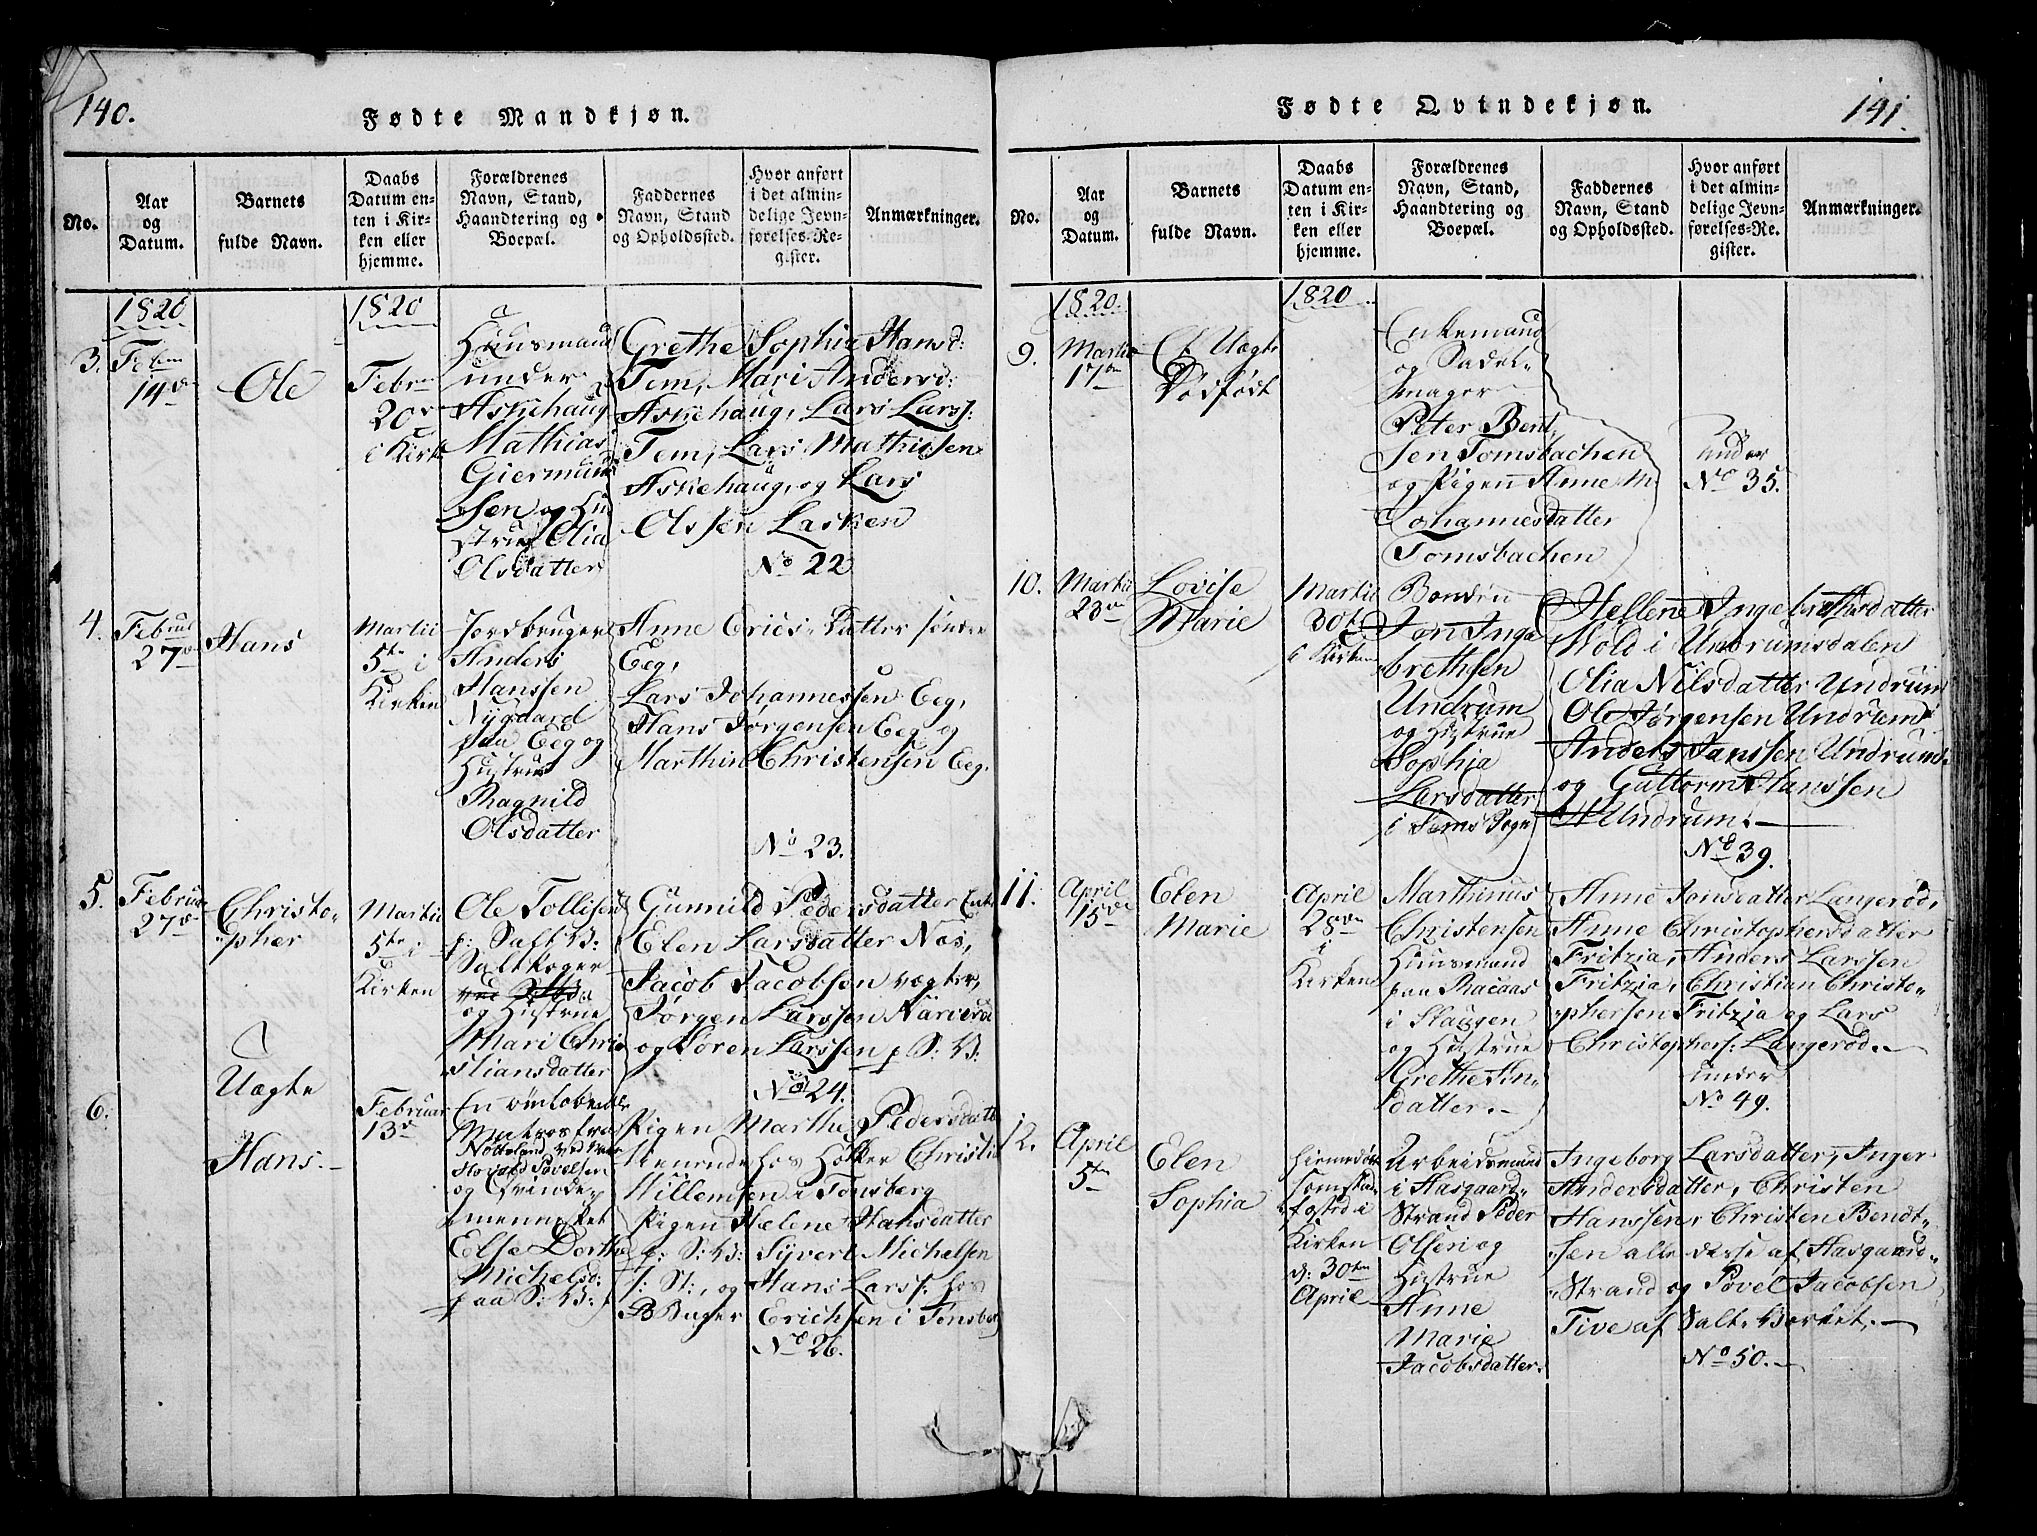 140.
Fødte Mandkjøn.
No.
Aar
og
Datum.
Barnets
fulde Navn.
Daabs
Datum en-
ten i Kir-
ken eller
hjemme.
Forældrenes
Navn, Stand,
Haandtering og
Boepæl.
Faddernes
Navn, Stand
og Opholdssted.
Hvor anført
i det almin-
delige Jevn-
førelses-Re-
gister.
Anmærkninger.
1820
1820
3.
Febr
14de
Ole
Febr
20de
i Kirk
Huusmand
under
Askehaug
Mathias
Giermund
sen og Hu
strue Olia
Olsdatter
Grethe Sophie Hansd:
Tem, Mari Andersd:
Askehaug, Lars Larss:
Tem, Lars Mathissen
Askehaug, og Lars
Olssen Lasken
No 22
4.
Februar
27de
Hans
Martii
5te i
Kirken
Jordbruger
Anders
Hanssen
Nÿgaard
paa Eeg og
Hustrue
Ragnild
Olsdatter
Anne Erics-Datter søndre
Eeg,
Lars Johannessen Eeg,
Hans Jørgensen Eeg og
Marthin Christensen Eeg.
No 23.
5.
Februar
27de
Christo-
pher
Martii
5te i
Kirken
Ole Tollefsen
p: Salt V:
Saltkoger
og Hustrue
Mari Chri
stiansdatter
Gunnild Pedersdatter
Elen Larsdatter Næs,
Jacob Jacobsen vægter,
Jørgen Larssen
og Søren Larssen p S: V:
No 24.
6.
Uægte
Hans.
Februar
13de
En
Matros fra
Nøtteland ved
Povelsen
og Qvinde-
mennesket
Else Dorthe
Michelsd:
paa S: V:
Pigen Marthe Pedersdatter
tienende hos Høkker Christi
Willemsen i Tønsberg
Pigen Hælene Hansdatter
p: S: V: Syvert Michelsen
p: St:, og Hans Larss: hos
Bager Erichsen i Tønsberg
No 26.
141.
Fødte Qvindekjøn.
No.
Aar
og
Datum.
Barnets
fulde Navn.
Daabs
Datum en-
ten i Kir-
ken eller
hjemme.
Forældrenes
Navn, Stand,
Haandtering og
Boepæl.
Faddernes
Navn, Stand
og Opholdssted.
Hvor anført
i det almin-
delige Jevn-
førelses-Re-
gister.
Anmærkninger.
1820.
1820
9.
Martii
17de
Et Uægte
Dødfødt
Enkemand
og Sadel-
mager
Peter Bent
sen Tomsbachen
og Pigen Anne M.
Johannesdatter
Tomsbachen
under
No 35.
10.
Martii
23de
Lovise
Marie
Martii
30te
i Kirken
Bonden
Jon Inge
brethsen
Undrum
og Hustrue
Sophia
Larsdatter
i Sems Sogn
Hellene Ingebrethsdatter
Wold i Undrumsdalen
Olia Nilsdatter Undrum
Ole Jørgensen Undrum
Anders Janssen Undrum
og Guttorm Hanssen
Undrum.
No 39.
11.
April
15de
Elen
Marie
April
28de
i
Kirken
Marthinus
Christensen
Huusmand
paa Racaas
i Slaugen
og Hustrue
Grethe
datter.
Anne Jonsdatter Langerød,
Anne Christophersdatter
Fritzia, Anders Larssen
Fritzia, Christian Christo-
phersen Fritzia og Lars
Christophers: Langerød.
under
No 49.
12.
April
5te
Elen
Sophia
Hiemedøbt
fæsted i
Kirken
d: 30te
April
Arbeidsmand
i Aasgaard-
Strand Peder
Olsen og
Hustrue
Anne
Marie
Jacobsdatter.
Ingeborg Larsdatter, Inger
Andersdatter, Christen
Hanssen, Christen Bendt-
sen alle disse af Aasgaard-
Strand og Povel Jacobsen
Tive af Salt-Værket.
No 50.